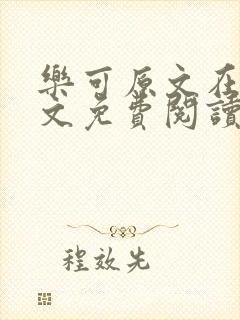 樂可原文在
文免費閱讀
程效先